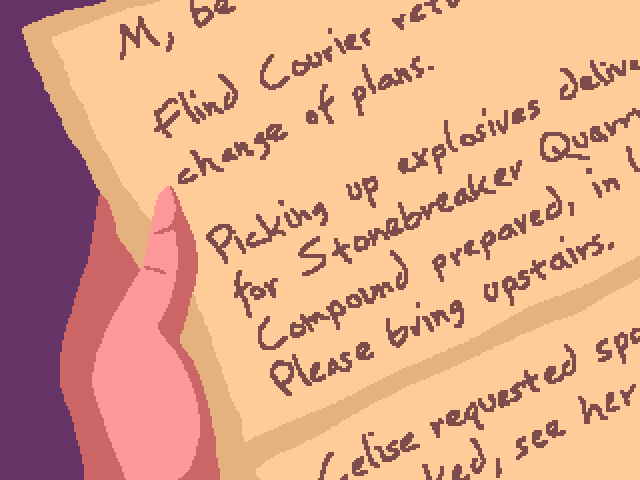 M, be
Flind Courier retu
change of plans.
Picking up explosives delive
for Stonebreaker Quarry
Compound prepared, in l
Please bring upstairs.
Celise requested spa
ked, see her